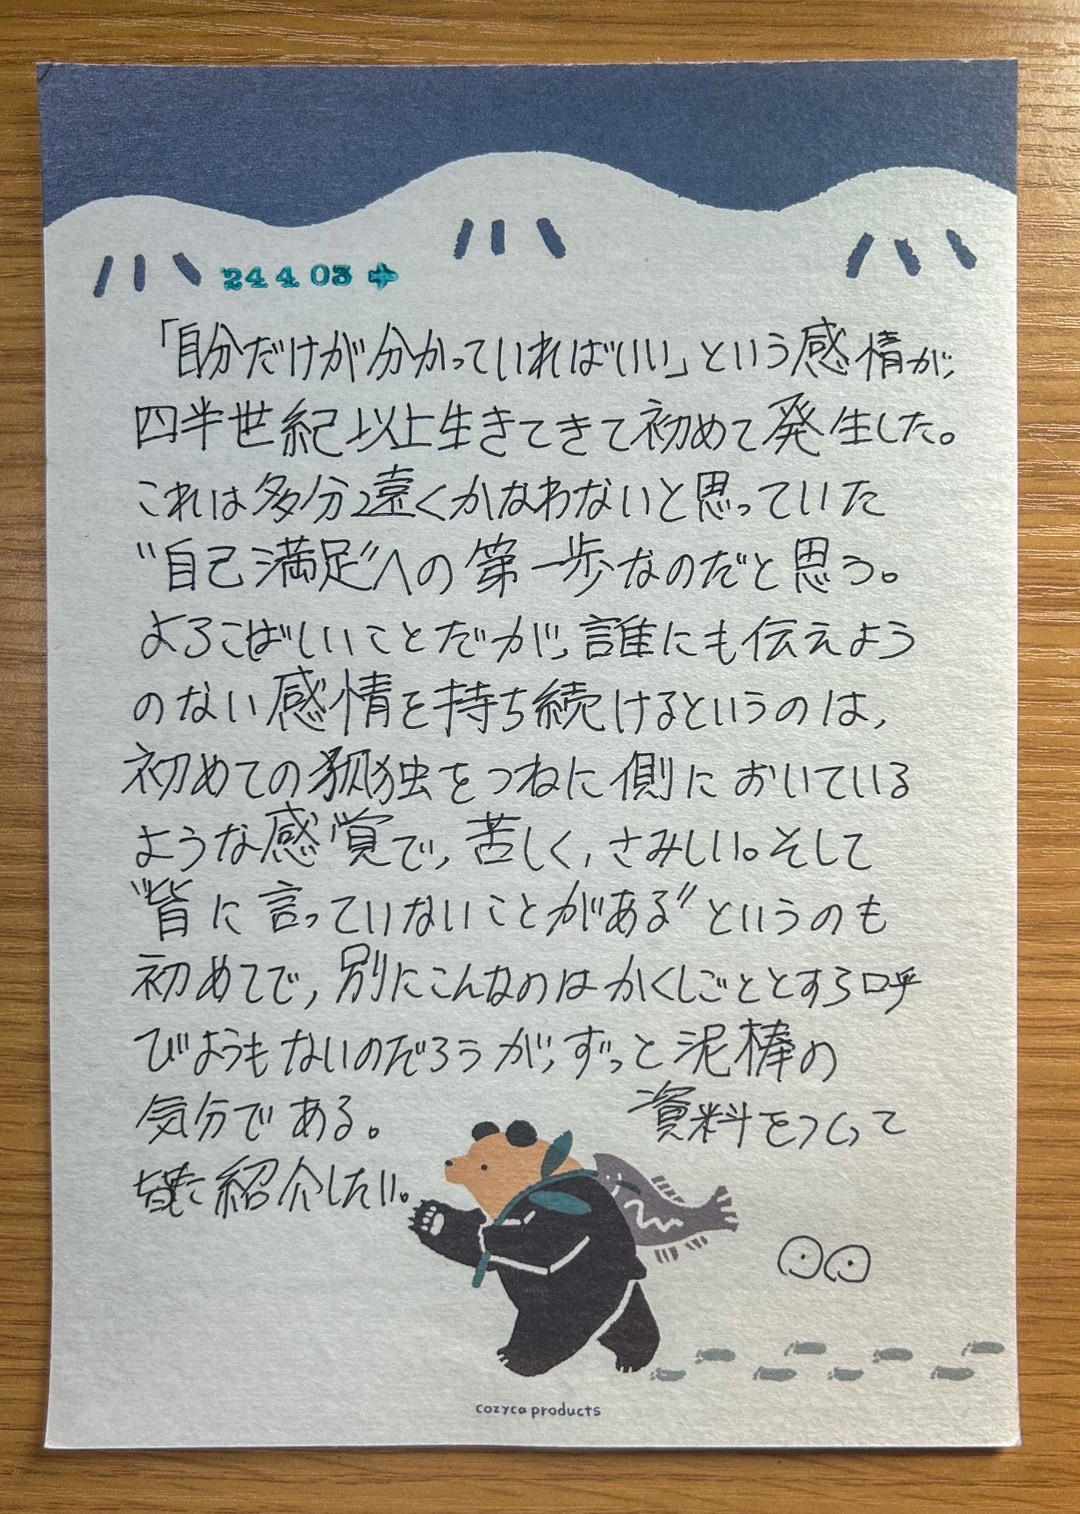 24 4 03
「自分だけが分かっていればいい」という感情が、
四半世紀以上生きてきて初めて発生した。
これは多分遠くかなわないと思っていた
"自己満足"への第一歩なのだと思う。
よろこばしいことだが、誰にも伝えよう
のない感情を持ち続けるというのは、
初めての孤独をつねに側においている
ような感覚で、苦しく、さみしい。そして
"皆に言っていないことがある"というのも
初めてで、別にこんなのはかくしごととする呼
びようもないのだろうが、ずっと泥棒の
気分である。
資料をつくって
皆に紹介したい。
cozyca products